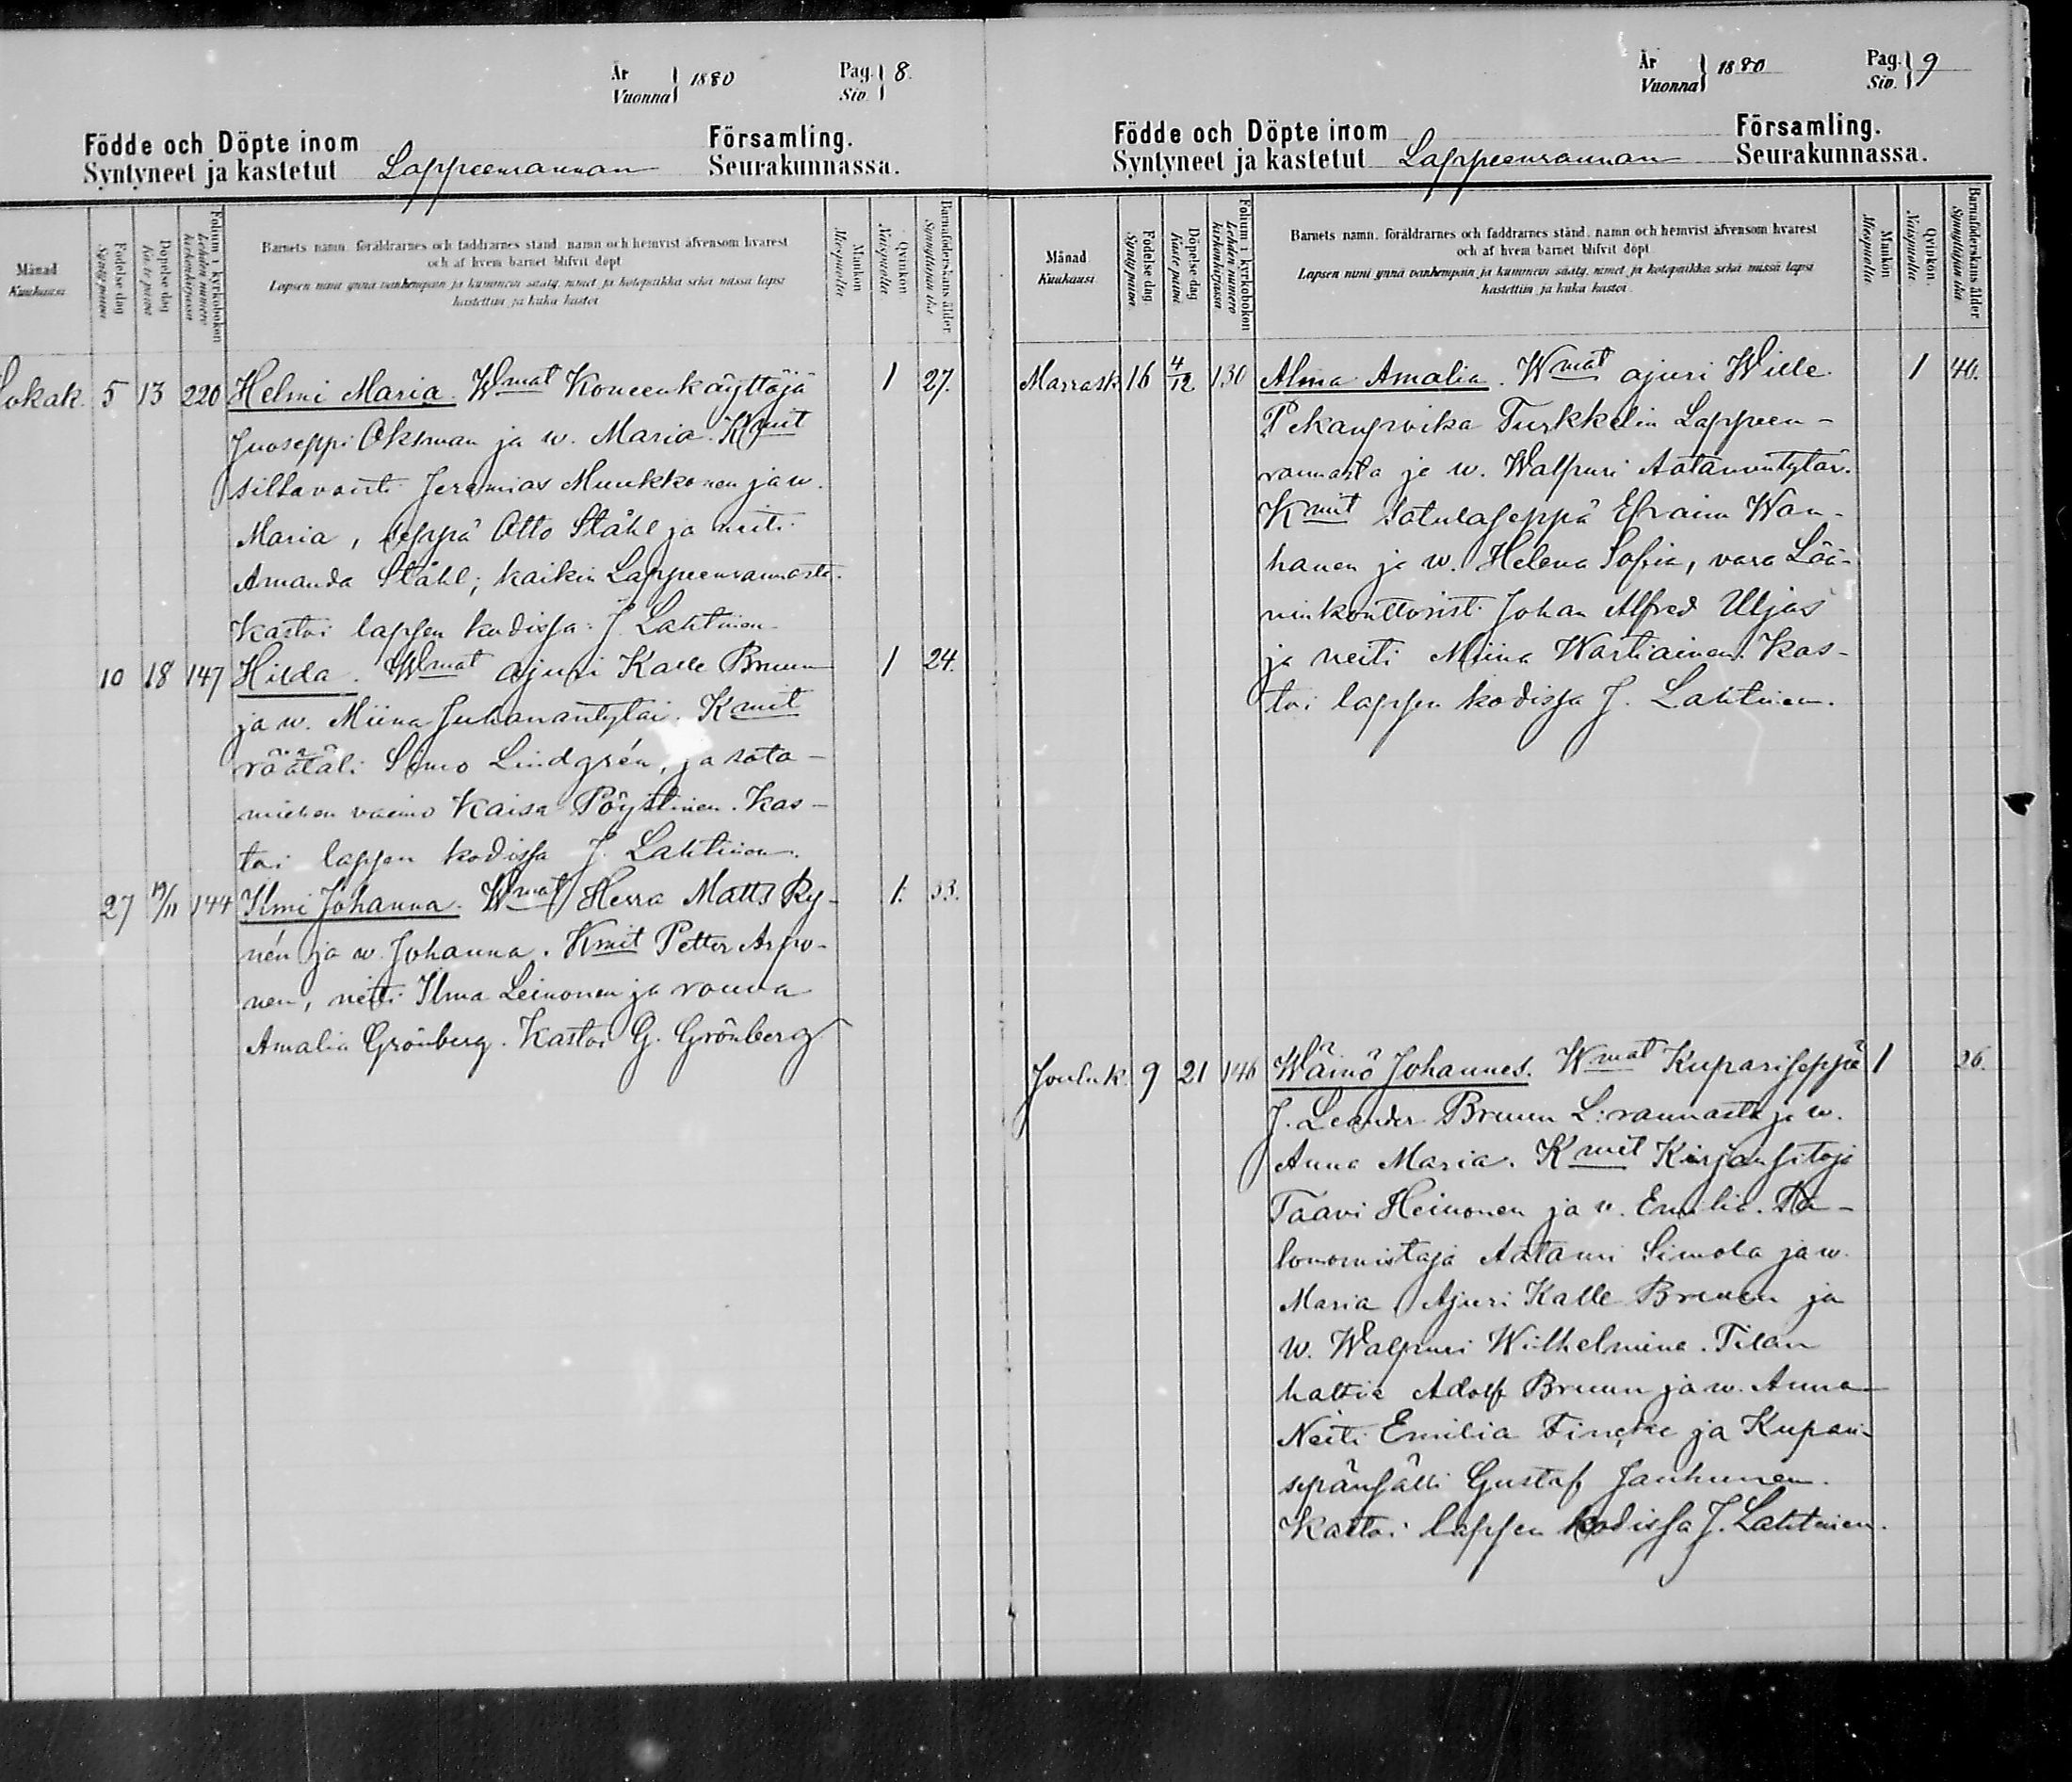 År 1880 Pag. 8.
Vuonna Siv.
Födde och Döpte inom Församling.
Syntyneet ja kastetut Lappeenrannan Seurakunnassa.
Månad
Kuukausi
Födelse dag
Syntypäivä
Döpelse dag
Kaste päivä
Folium i kyrkobokon
Lehden numero kirkonkirjassa
Barnets namn, föräldrarnes och faddrarnes stånd, namn och hemvist äfvensom hvarest
och af hvem barnet blifvit döpt
Lapsen nimi ynnä vanhempain ja kummein sääty, nimet ja kotopaikka sekä missä lapsi
kastettiin ja kuka kastoi
Mankön
Miespuolia
Qvinkön
Naispuolia
Barnaföderskans ålder
Synnyttäjän ikä
Lokak. 5 13 220 Helmi Maria. Wmat Koneenkäyttöjä 1 27.
Juoseppi Oksman ja w. Maria. Kmit
siltavouti Jeremias Munkkonen ja w.
Maria, seppä Otto Ståhl ja neiti
Amanda Ståhl; kaikin Lappeenrannasta.
Kastoi lapsen kodissa: J. Lahtinen
10 18 147 Hilda. Wmat ajuri Kalle Bruun 1 24.
ja w. Miina Juhanantytär. Kmit
räätäli Simo Lindgrén, ja sota-
miehen vaimo Kaisa Pöystinen. Kas-
toi lapsen kodissa J. Lahtinen.
27 19/11 144 Ilmi Johanna. Wmat Herra Matts Ry- 1. 33.
nén ja w. Johanna. Kmit Petter Arpo-
nen, neiti Ilma Leinonen ja rouva
Amalia Grönberg. Kastoi G. Grönberg
År 1880 Pag. 9
Vuonna Siv.
Födde och Döpte inom Församling.
Syntyneet ja kastetut Lappeenrannan Seurakunnassa.
Månad
Kuukausi
Födelse dag
Syntypäivä
Döpelse dag
Kaste päivä
Folium i kyrkobokon
Lehden numero kirkonkirjassa
Barnets namn, föräldrarnes och faddrarnes stånd, namn och hemvist äfvensom hvarest
och af hvem barnet blifvit döpt.
Lapsen nimi ynnä vanhempain ja kummein sääty, nimet ja kotopaikka sekä missä lapsi
kastettiin ja kuka kastoi.
Mankön
Miespuolia
Qvinkön.
Naispuolia
Barnaföderskans ålder
Synnyttäjän ikä
Marrask. 16 4/12 130 Alma Amalia. Wmat ajuri Wille 1 40.
Turkkelin Lappeen-
rannasta ja w. Walpuri Aatamintytär.
Kmit Satulaseppä Efraim Wan-
hanen ja w. Helena Sofia, vara Lää-
ninkonttoristi Johan Alfred Uljas
ja neiti Miina Wartiainen. Kas-
toi lapsen kodissa J. Lahtinen.
Jouluk. 9 21 146 Wäinö Johannes. Wmat Kupariseppä 1 26.
J. Leander Bruun L:rannasta ja w.
Anna Maria. Kmit Kirjansitoja
Taavi Heinonen ja w. Emilia. Ta-
lonomistaja Aatami Simola ja w.
Maria Ajuri Kalle Bruun ja
w. Walpuri Wilhelmina. Tilan
haltia Adolf Bruun ja w. Anna
Neiti Emilia Fincke ja Kupari-
sepänsälli Gustaf Janhunen.
Kastoi lapsen kodissa J. Lahtinen.